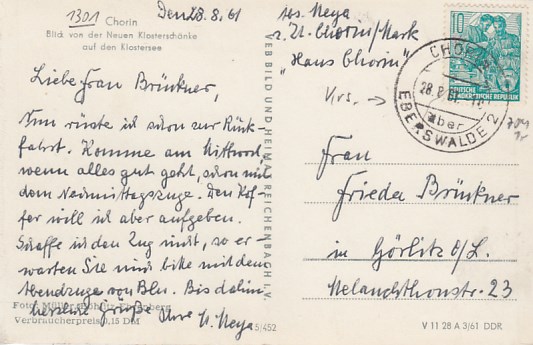 1301
Chorin
Blick von der Neuen Klosterschänke
auf den Klostersee
Den 28. 8. 61
Liebe Frau Brückner,
Nun rüste ich schon zur Rück-
fahrt. Komme am Mittwoch,
wenn alles gut geht, schon mit
dem Nachmittagszuge. Den Kof-
fer will ich aber aufgeben.
Schaffe ich den Zug nicht, so er-
warten Sie mich bitte mit dem
Abendzuge von Bln. Bis dahin
herzliche Grüße Ihre H. Meya
Foto:
Verbraucherpreis 0,15 DM
5/452
VEB BILD UND HEIMAT REICHENBACH I. V.
Abs. Meya
z. Zt. Chorin/Mark
"Haus Chorin"
10
DEUTSCHE
DEMOKRATISCHE REPUBLIK
CHORIN
28. 8. 61
über
EBERSWALDE 2
Frau
Frieda Brückner
in Görlitz O/L.
Melanchthonstr. 23
V 11 28 A 3/61 DDR